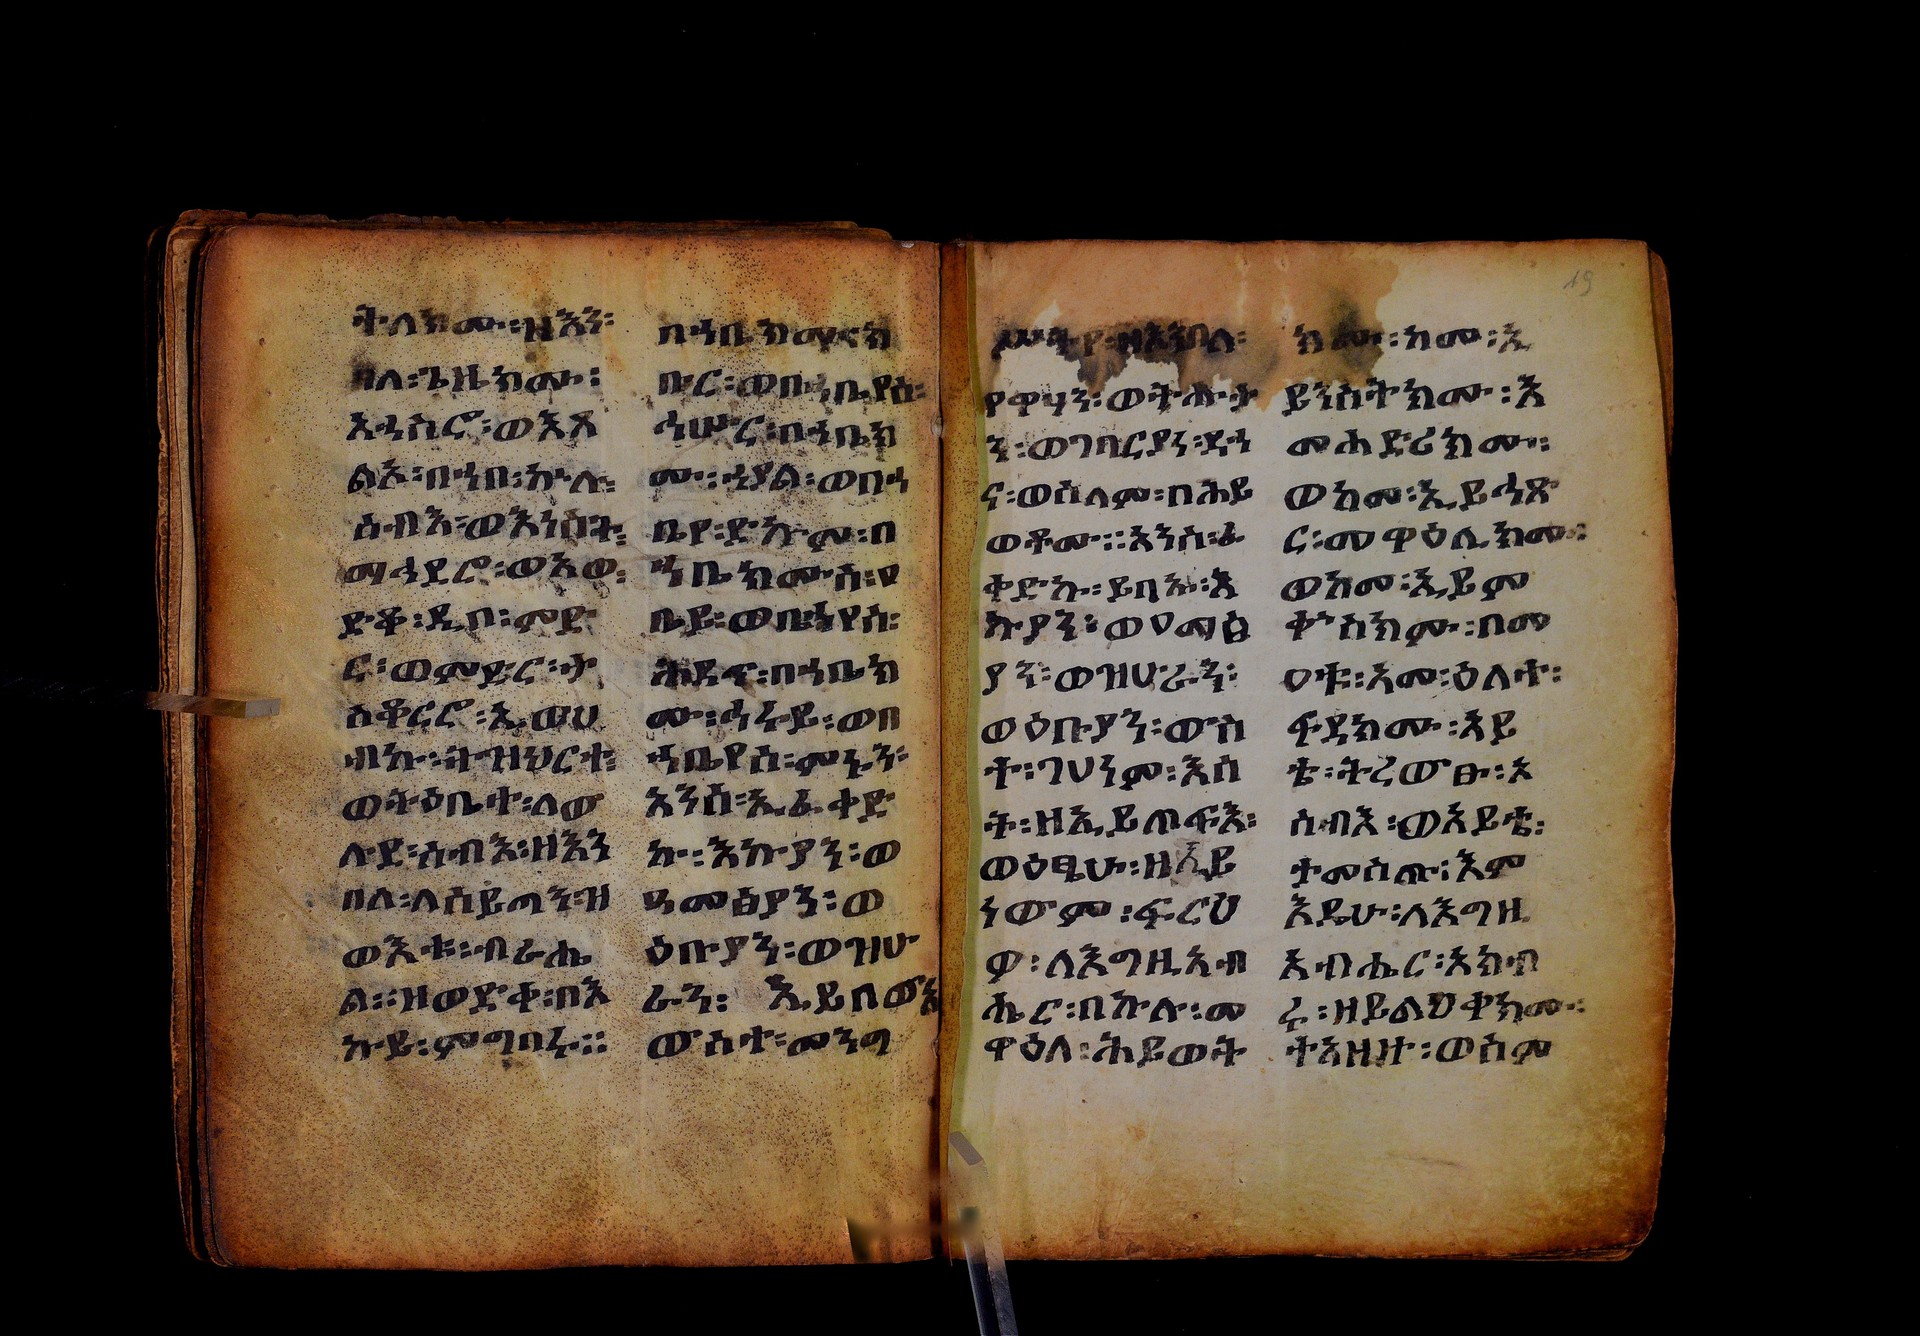 ትለክሙ፡ዝእን፡
በለ፡ጌዜክሙ፡
እኂስሮ፡ወእጸ
ልእ፡በኀበ፡ኵሉ፡
ሰብእ፡ወእነስት፡
ማኅደሮ፡ወእወ፡
ድቆ፡ዲበ፡ምድ
ር፡ወምድር፡ት
ስቆርሮ፡ኢወሀ
ብኩ፡ትዝህርተ፡
ወትዕቤተ፡ለው
ሉደ፡ሰብእ፡ዘእን
በለ፡ለሰይጣን፡ዝ
ውእቱ፡ብሩህ
ል፡፡ዝወድቀ፡በእ
ኩይ፡ምግባሩ፡፡
በኀቤክሙ፡ክ
ቡር፡ወበኀቤየሰ፡
ኅሡር፡በኀቤክ
ሙ፡ኀያል፡ወበኀ
ቤየ፡ድኩም፡በ
ኀቤክሙሰ፡ዐ
ቢይ፡ወበኀቤየሰ፡
ሕዳጥ፡በኀቤክ
ሙ፡ኅሩይ፡ወበ
ኀቤየሰ፡ምኑን፡
አንሰ፡ኢፈቀድ
ኩ፡እኩያን፡ወ
ዓመፅያን፡ወ
ዕቡያን፡ወዝሁ
ራን፡ ኢይበውኡ
ውስተ፡መንግ
ሥትየ፡ዘእንበለ፡
የዋሃን፡ወትሑታ
ን፡ወገባርያን፡ደኅ
ና፡ወሰላም፡በሕይ
ወቶሙ፡፡አንሰ፡ፈ
ቀድኩ፡ይበኡ፡እ
ኩያን፡ወዐማፅ
ያን፡ወዝሁራን፡
ወዕቡያን፡ውስ
ተ፡ገሀነም፡እሳ
ት፡ዘኢይጠፍእ፡
ወዕፄሁ፡ዘኢይ
ነውም፡ፍርሀ
ዎ፡ለእግዚአብ
ሔር፡በኵሉ፡መ
ዋዕለ፡ሕይወት
ክሙ፡ከመ፡ኢ
ይንስትክሙ፡እ
መሕድሪክሙ፡
ወከመ፡ኢይኅጽ
ር፡መዋዕሊክሙ፡
ወከመ፡ኢይም
ቀ፡ስክሙ፡በመ
ዐቱ፡አመ፡ዕለተ፡
ፍዳክሙ፡አይ
ቴ፡ትረውፁ፡አ
ሰብእ፡ወአይቴ፡
ታመስጡ፡እም
እዴሁ፡ለእግዚ
እብሔር፡አክብ
ሩ፡ዘይልህቀክሙ፡
ትእዛዘ፡ወስም